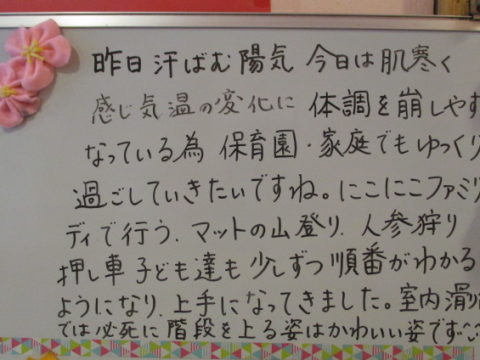 昨日汗ばむ陽気 今日は肌寒く
感じ気温の変化に 体調を崩しやす
なっている為 保育園・家庭でもゆっくり
過ごしていきたいですね。にこにこファミリ
ディで行う、マットの山登り、人参狩り
押し車 子ども達も少しずつ順番がわかる
ようになり、上手になってきました。室内滑り
では必死に階段を上る姿はかわいい姿です